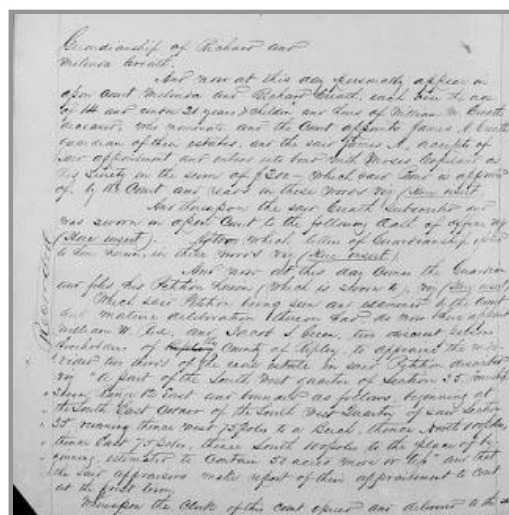 Guardianship of Richard and
Melinda Creath.
And now at this day personally appear in
open Court Melinda and Richard Creath, each over the age
of 14 and under 21 years children and heirs of William M. Creath
deceased, who nominate, and the Court appoints James A. Creath
guardian of their estates, and the said James A. accepts of
said appointment and enters into bond with Moses Copeland as
his Surety in the sum of $200 - which said bond is approved
of, by the Court and reads in these words viz (Here insert
And thereupon the said Creath Subscribed and
was sworn in open Court to the following Oath of office viz
(Here insert). which letters of Guardianship
to him, in these words viz (Here insert)
And now at this day comes the Guardian
and files his Petition herein (which is sworn to), viz (Here insert)
Which said Petition being seen and examined by the Court
and mature deliberation thereon had, do now here appoint
William W. and Jacob S. two discreet
freeholders of the County of Ripley, to appraise the
of the real estate in said Petition described
viz "A part of the South West quarter of Section 35, Township
Range East and bounded as follows, beginning at
the South East Corner of the South West Quarter of said Section
35, running thence West 75 Poles to a Beech, thence North Poles
thence East 75 Poles, thence South Poles to the place of be-
ginning, estimated to Contain 50 acres more or less" and that
the said appraisers make report of their appraisement to Court
at the term
Whereupon the Clerk of this court and delivered to the
Recorded